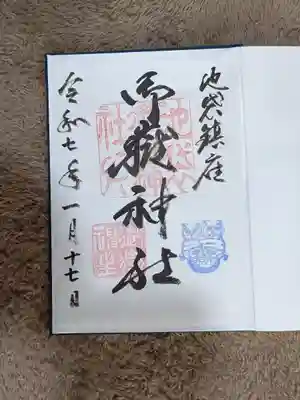 池袋鎮座
御嶽神社
令和七年一月十七日